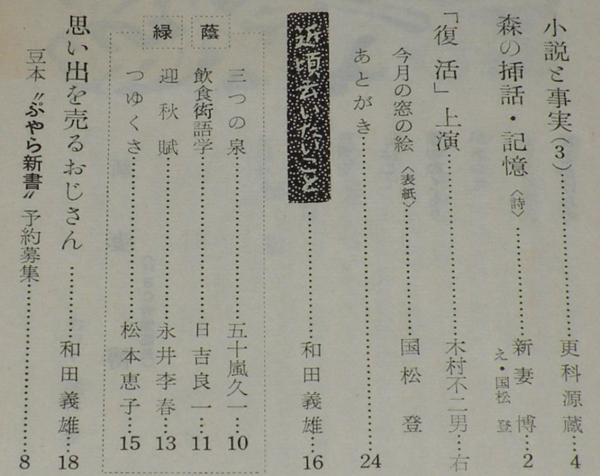 小説と事実(3)…更科源蔵…4
森の挿話・記憶〈詩〉…新妻博…2
え・国松登
「復活」上演…木村不二男…右
今月の窓の絵〈表紙〉…国松登
あとがき…24
近頃云いたいこと…和田義雄…16
緑蔭
三つの泉…五十嵐久一…10
飲食街語学…日吉良一…11
迎秋賦…永井李春…13
つゆくさ…松本恵子…15
思い出を売るおじさん…和田義雄…18
豆本〝ぷやら新書〟予約募集…8